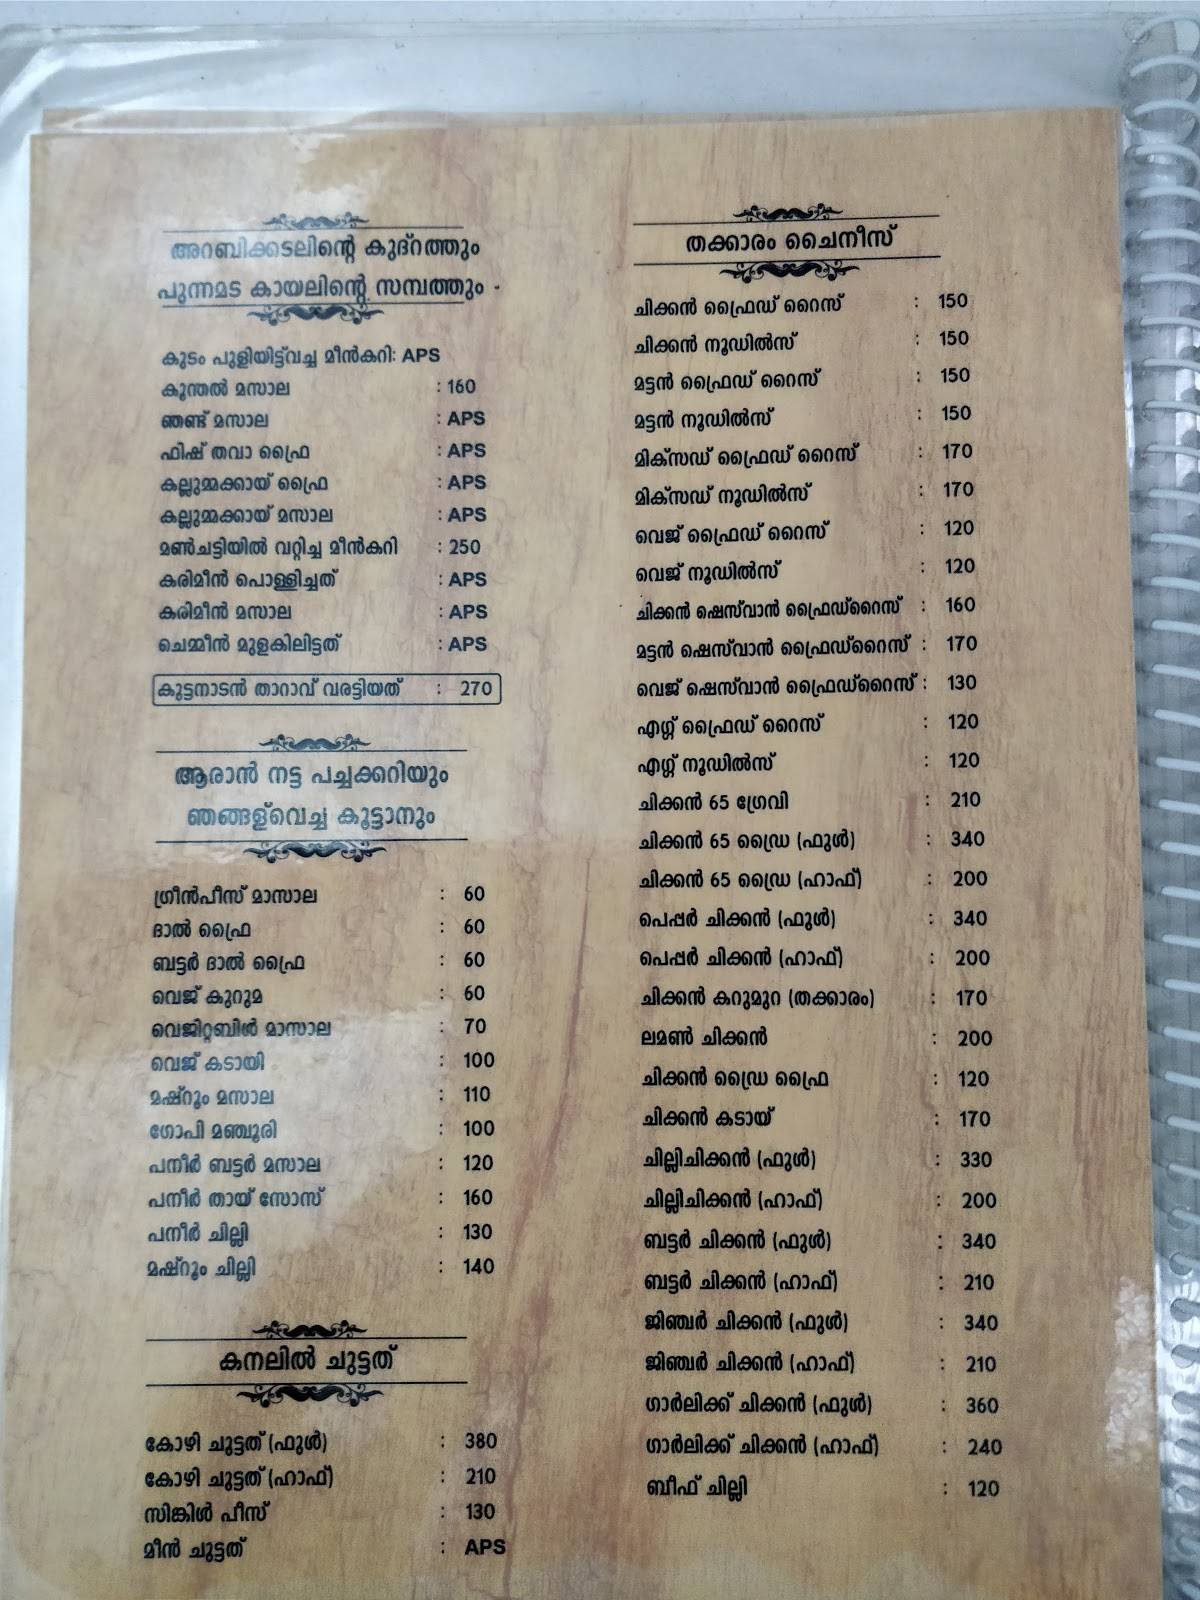 അറബിക്കടലിന്റെ കുദ്റത്തും
പുന്നമട കായലിന്റെ സമ്പത്തും
കുടം പുളിയിട്ട്‌വച്ച മീൻകറി: APS
കൂന്തൽ മസാല : 160
ഞണ്ട് മസാല : APS
ഫിഷ് തവാ ഫ്രൈ : APS
കല്ലുമ്മക്കായ് ഫ്രൈ : APS
കല്ലുമ്മക്കായ് മസാല : APS
മൺചട്ടിയിൽ വറ്റിച്ച മീൻകറി : 250
കരിമീൻ പൊള്ളിച്ചത് : APS
കരിമീൻ മസാല : APS
ചെമ്മീൻ മുളകിലിട്ടത് : APS
കുട്ടനാടൻ താറാവ് വരട്ടിയത് : 270
ആരാൻ നട്ട പച്ചക്കറിയും
ഞങ്ങള്വെച്ച കൂട്ടാനും
ഗ്രീൻപീസ് മാസാല : 60
ദാൽ ഫ്രൈ : 60
ബട്ടർ ദാൽ ഫ്രൈ : 60
വെജ് കുറുമ : 60
വെജിറ്റബിൾ മാസാല : 70
വെജ് കടായി : 100
മഷ്റൂം മസാല : 110
ഗോപി മഞ്ചൂരി : 100
പനീർ ബട്ടർ മസാല : 120
പനീർ തായ് സോസ് : 160
പനീർ ചില്ലി : 130
മഷ്റൂം ചില്ലി : 140
കനലിൽ ചുട്ടത്
കോഴി ചുട്ടത് (ഫുൾ) : 380
കോഴി ചുട്ടത് (ഹാഫ്) : 210
സിങ്കിൾ പീസ് : 130
മീൻ ചുട്ടത് : APS
തക്കാരം ചൈനീസ്
ചിക്കൻ ഫ്രൈഡ് റൈസ് : 150
ചിക്കൻ നൂഡിൽസ് : 150
മട്ടൻ ഫ്രൈഡ് റൈസ് : 150
മട്ടൻ നൂഡിൽസ് : 150
മിക്സഡ് ഫ്രൈഡ് റൈസ് : 170
മിക്സഡ് നൂഡിൽസ് : 170
വെജ് ഫ്രൈഡ് റൈസ് : 120
വെജ് നൂഡിൽസ് : 120
ചിക്കൻ ഷെസ്‌വാൻ ഫ്രൈഡ്റൈസ് : 160
മട്ടൻ ഷെസ്‌വാൻ ഫ്രൈഡ്റൈസ് : 170
വെജ് ഷെസ്‌വാൻ ഫ്രൈഡ്റൈസ് : 130
എഗ്ഗ് ഫ്രൈഡ് റൈസ് : 120
എഗ്ഗ് നൂഡിൽസ് : 120
ചിക്കൻ 65 ഗ്രേവി : 210
ചിക്കൻ 65 ഡ്രൈ (ഫുൾ) : 340
ചിക്കൻ 65 ഡ്രൈ (ഹാഫ്) : 200
പെപ്പർ ചിക്കൻ (ഫുൾ) : 340
പെപ്പർ ചിക്കൻ (ഹാഫ്) : 200
ചിക്കൻ കറുമുറ (തക്കാരം) : 170
ലമൺ ചിക്കൻ : 200
ചിക്കൻ ഡ്രൈ ഫ്രൈ : 120
ചിക്കൻ കടായ് : 170
ചില്ലിചിക്കൻ (ഫുൾ) : 330
ചില്ലിചിക്കൻ (ഹാഫ്) : 200
ബട്ടർ ചിക്കൻ (ഫുൾ) : 340
ബട്ടർ ചിക്കൻ (ഹാഫ്) : 210
ജിഞ്ചർ ചിക്കൻ (ഫുൾ) : 340
ജിഞ്ചർ ചിക്കൻ (ഹാഫ്) : 210
ഗാർലിക്ക് ചിക്കൻ (ഫുൾ) : 360
ഗാർലിക്ക് ചിക്കൻ (ഹാഫ്) : 240
ബീഫ് ചില്ലി : 120